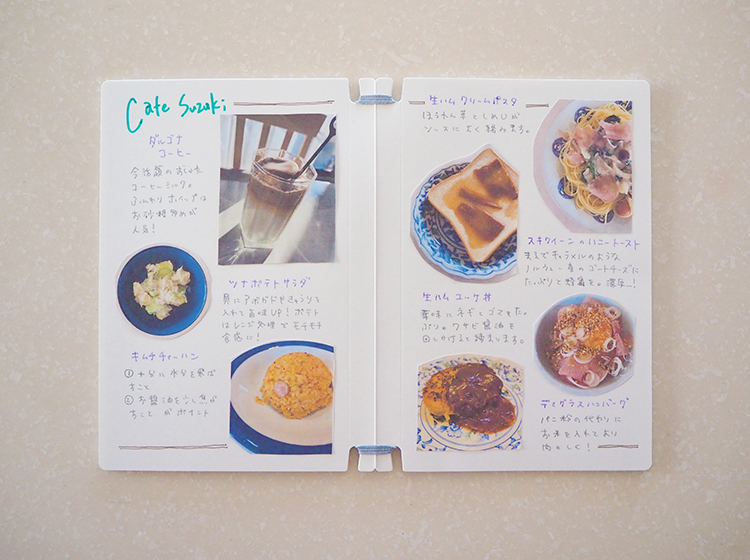 Cafe Suzuki
ダルゴナ
コーヒー
今話題のおしゃれ
コーヒーミルク。
ふんわりホイップは
お砂糖多めが
人気！
ツナポテトサラダ
具にアボカドやきゅうりを
入れて旨味UP！ポテト
はレンジ処理でモチモチ
食感に！
キムチチャーハン
①十分に水分を飛ば
すこと
②お醤油を少し焦が
すこと がポイント
生ハムクリームパスタ
ほうれん草としめじが
ソースによく絡みます。
スキクイーンのハニートースト
まるでキャラメルのような
ノルウェー産のゴートチーズに
たっぷりと蜂蜜を。濃厚…！
生ハムユッケ丼
薬味にネギとゴマをた
っぷり。ワサビ醤油を
回しかけると締まります。
デミグラスハンバーグ
パン粉の代わりに
お麩を入れており
肉々しく！